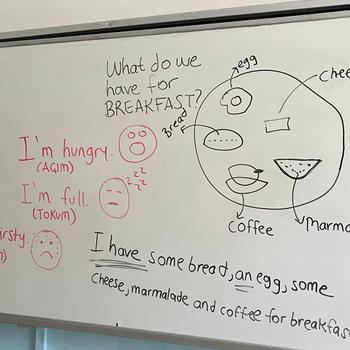 What do we
have for
BREAKFAST?
egg
Chee
Bread
Coffee
Marma
I'm hungry.
(AÇIM)
I'm full.
(TOKUM)
irsty.
I have some bread, an egg, some
Cheese, marmalade and coffee for breakfas